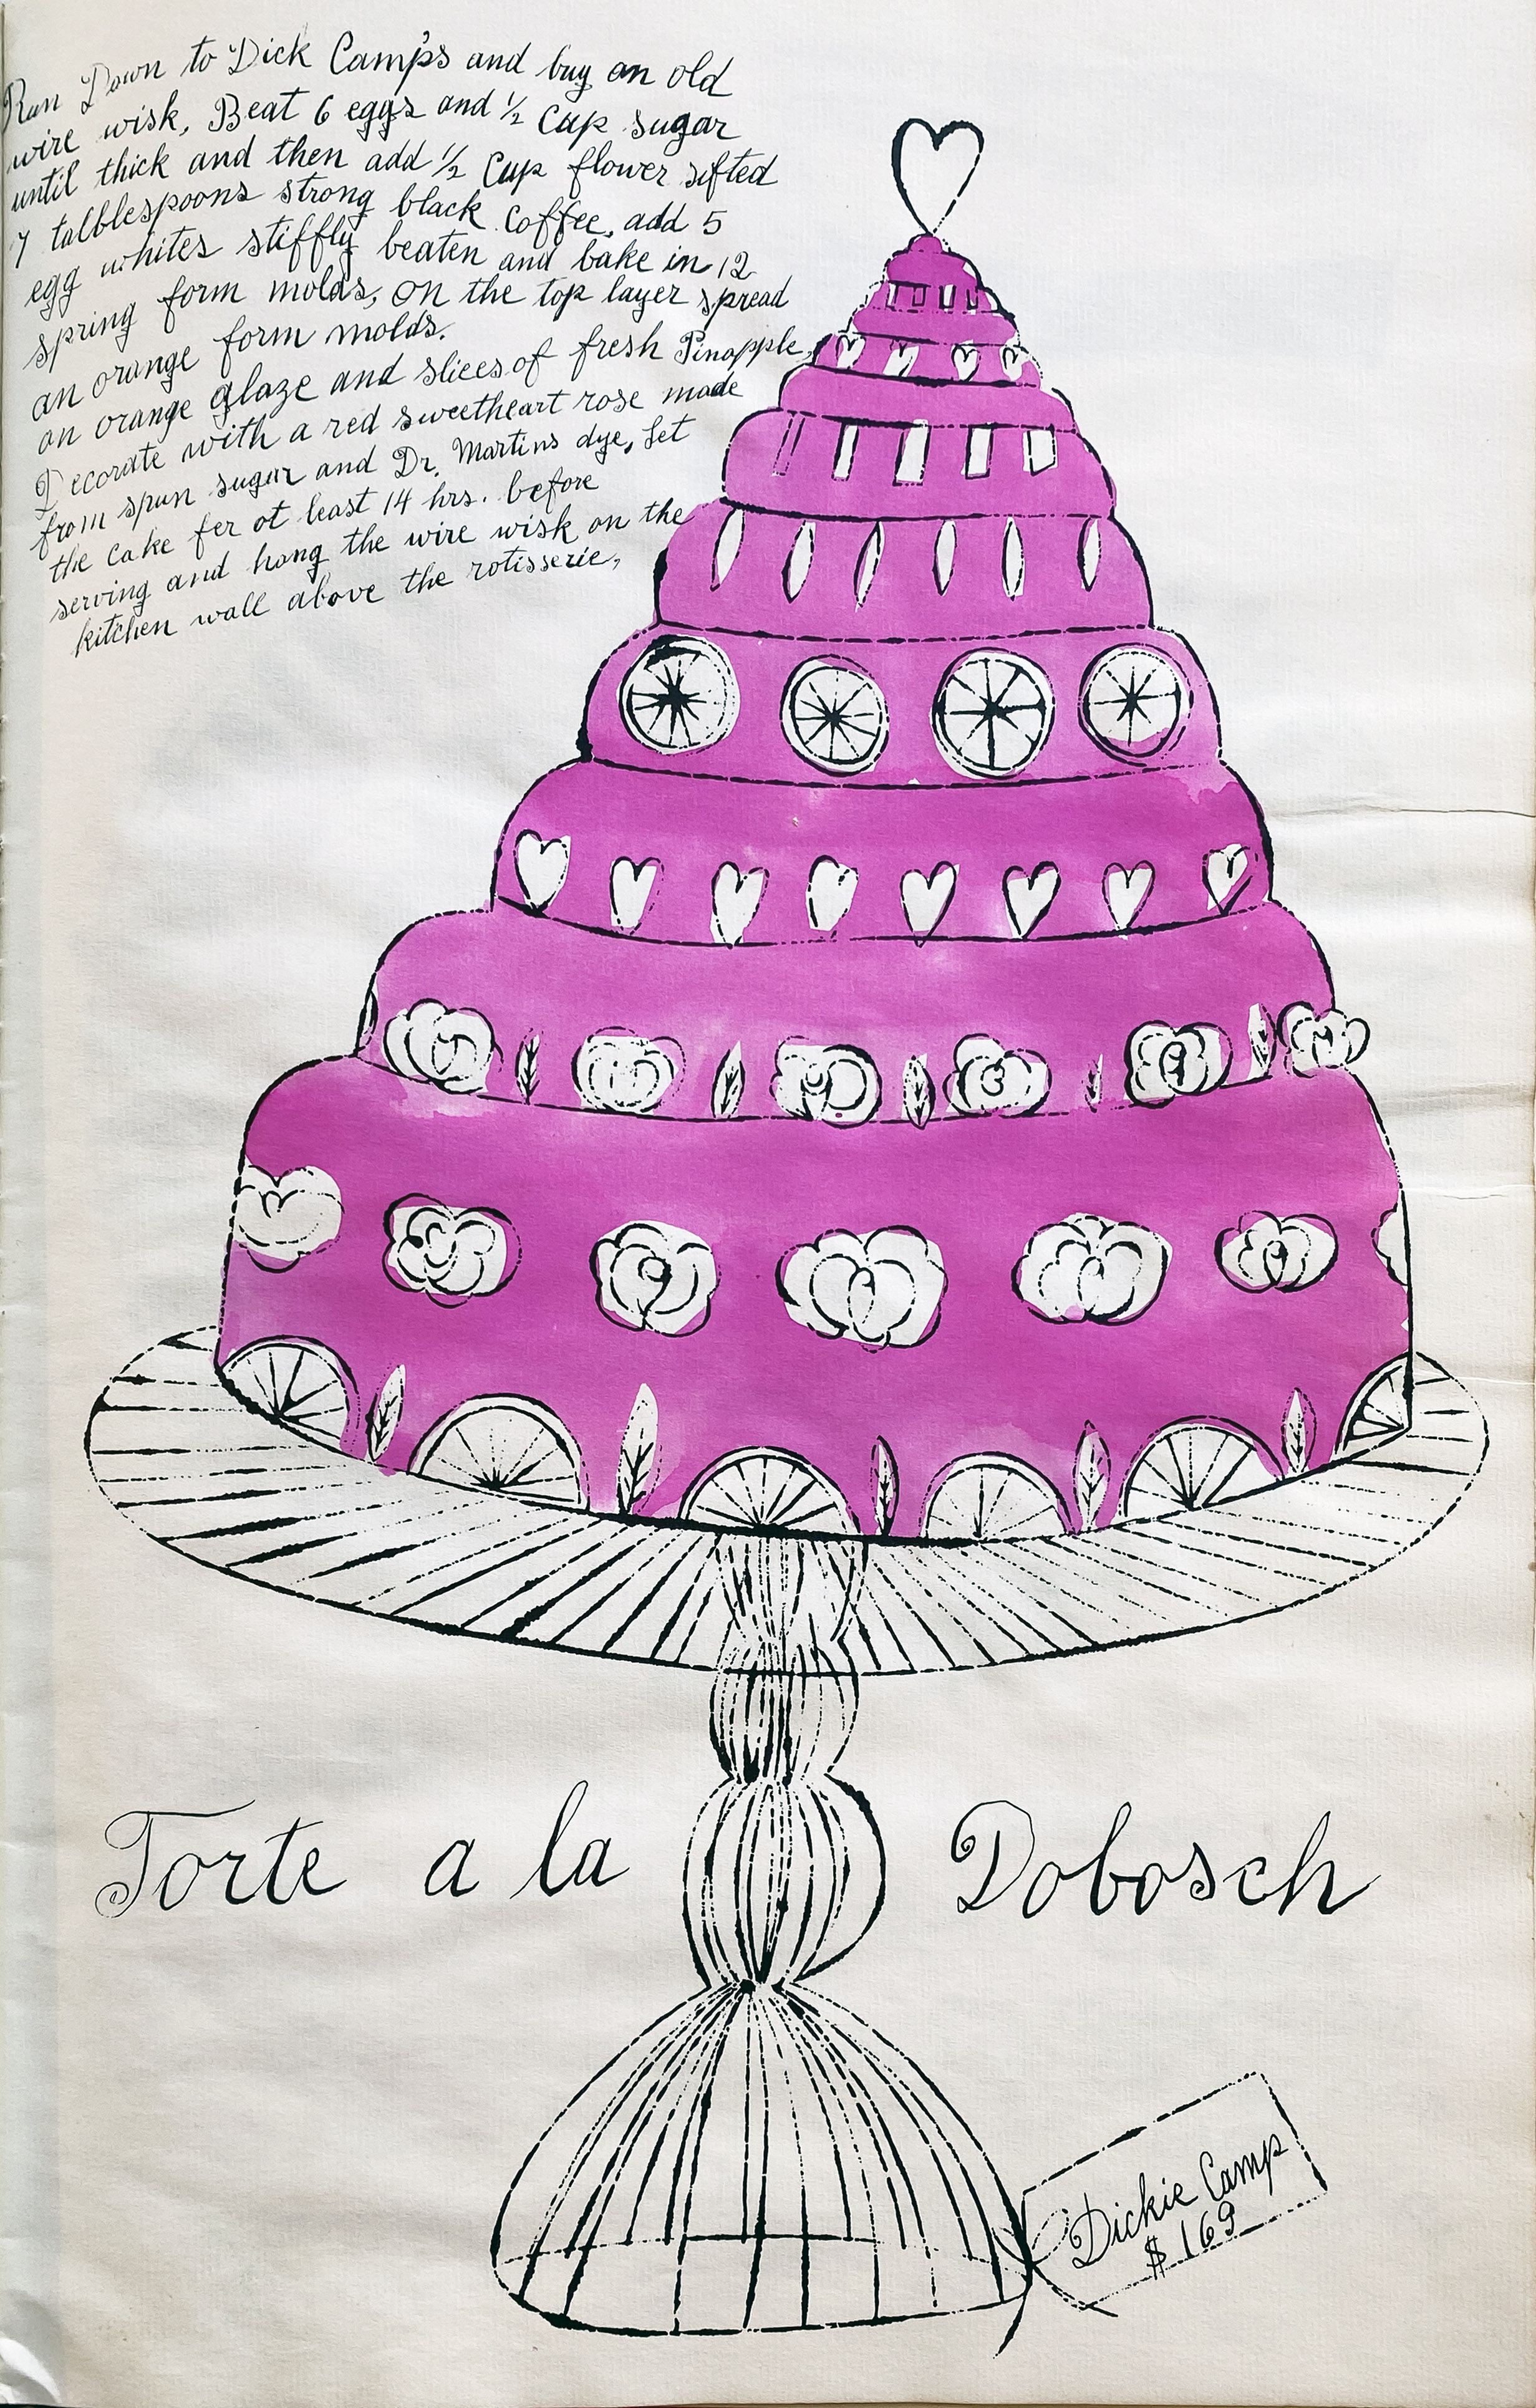 Run Down to Dick Camp's and buy an old
wire wisk, Beat 6 eggs and ½ Cup sugar
until thick and then add ½ Cup flower sifted
7 talblespoons strong black Coffee, add 5
egg whites stiffly beaten and bake in 12
spring form molds, on the top layer spread
an orange form molds.
on orange glaze and slices of fresh Pinapple,
Decorate with a red sweetheart rose made
from spun sugar and Dr. Martins dye, Let
the Cake fer ot least 14 hrs. before
serving and hang the wire wisk on the
kitchen wall above the rotisserie,
Torte a la Dobosch
Dickie Camp
$ 169